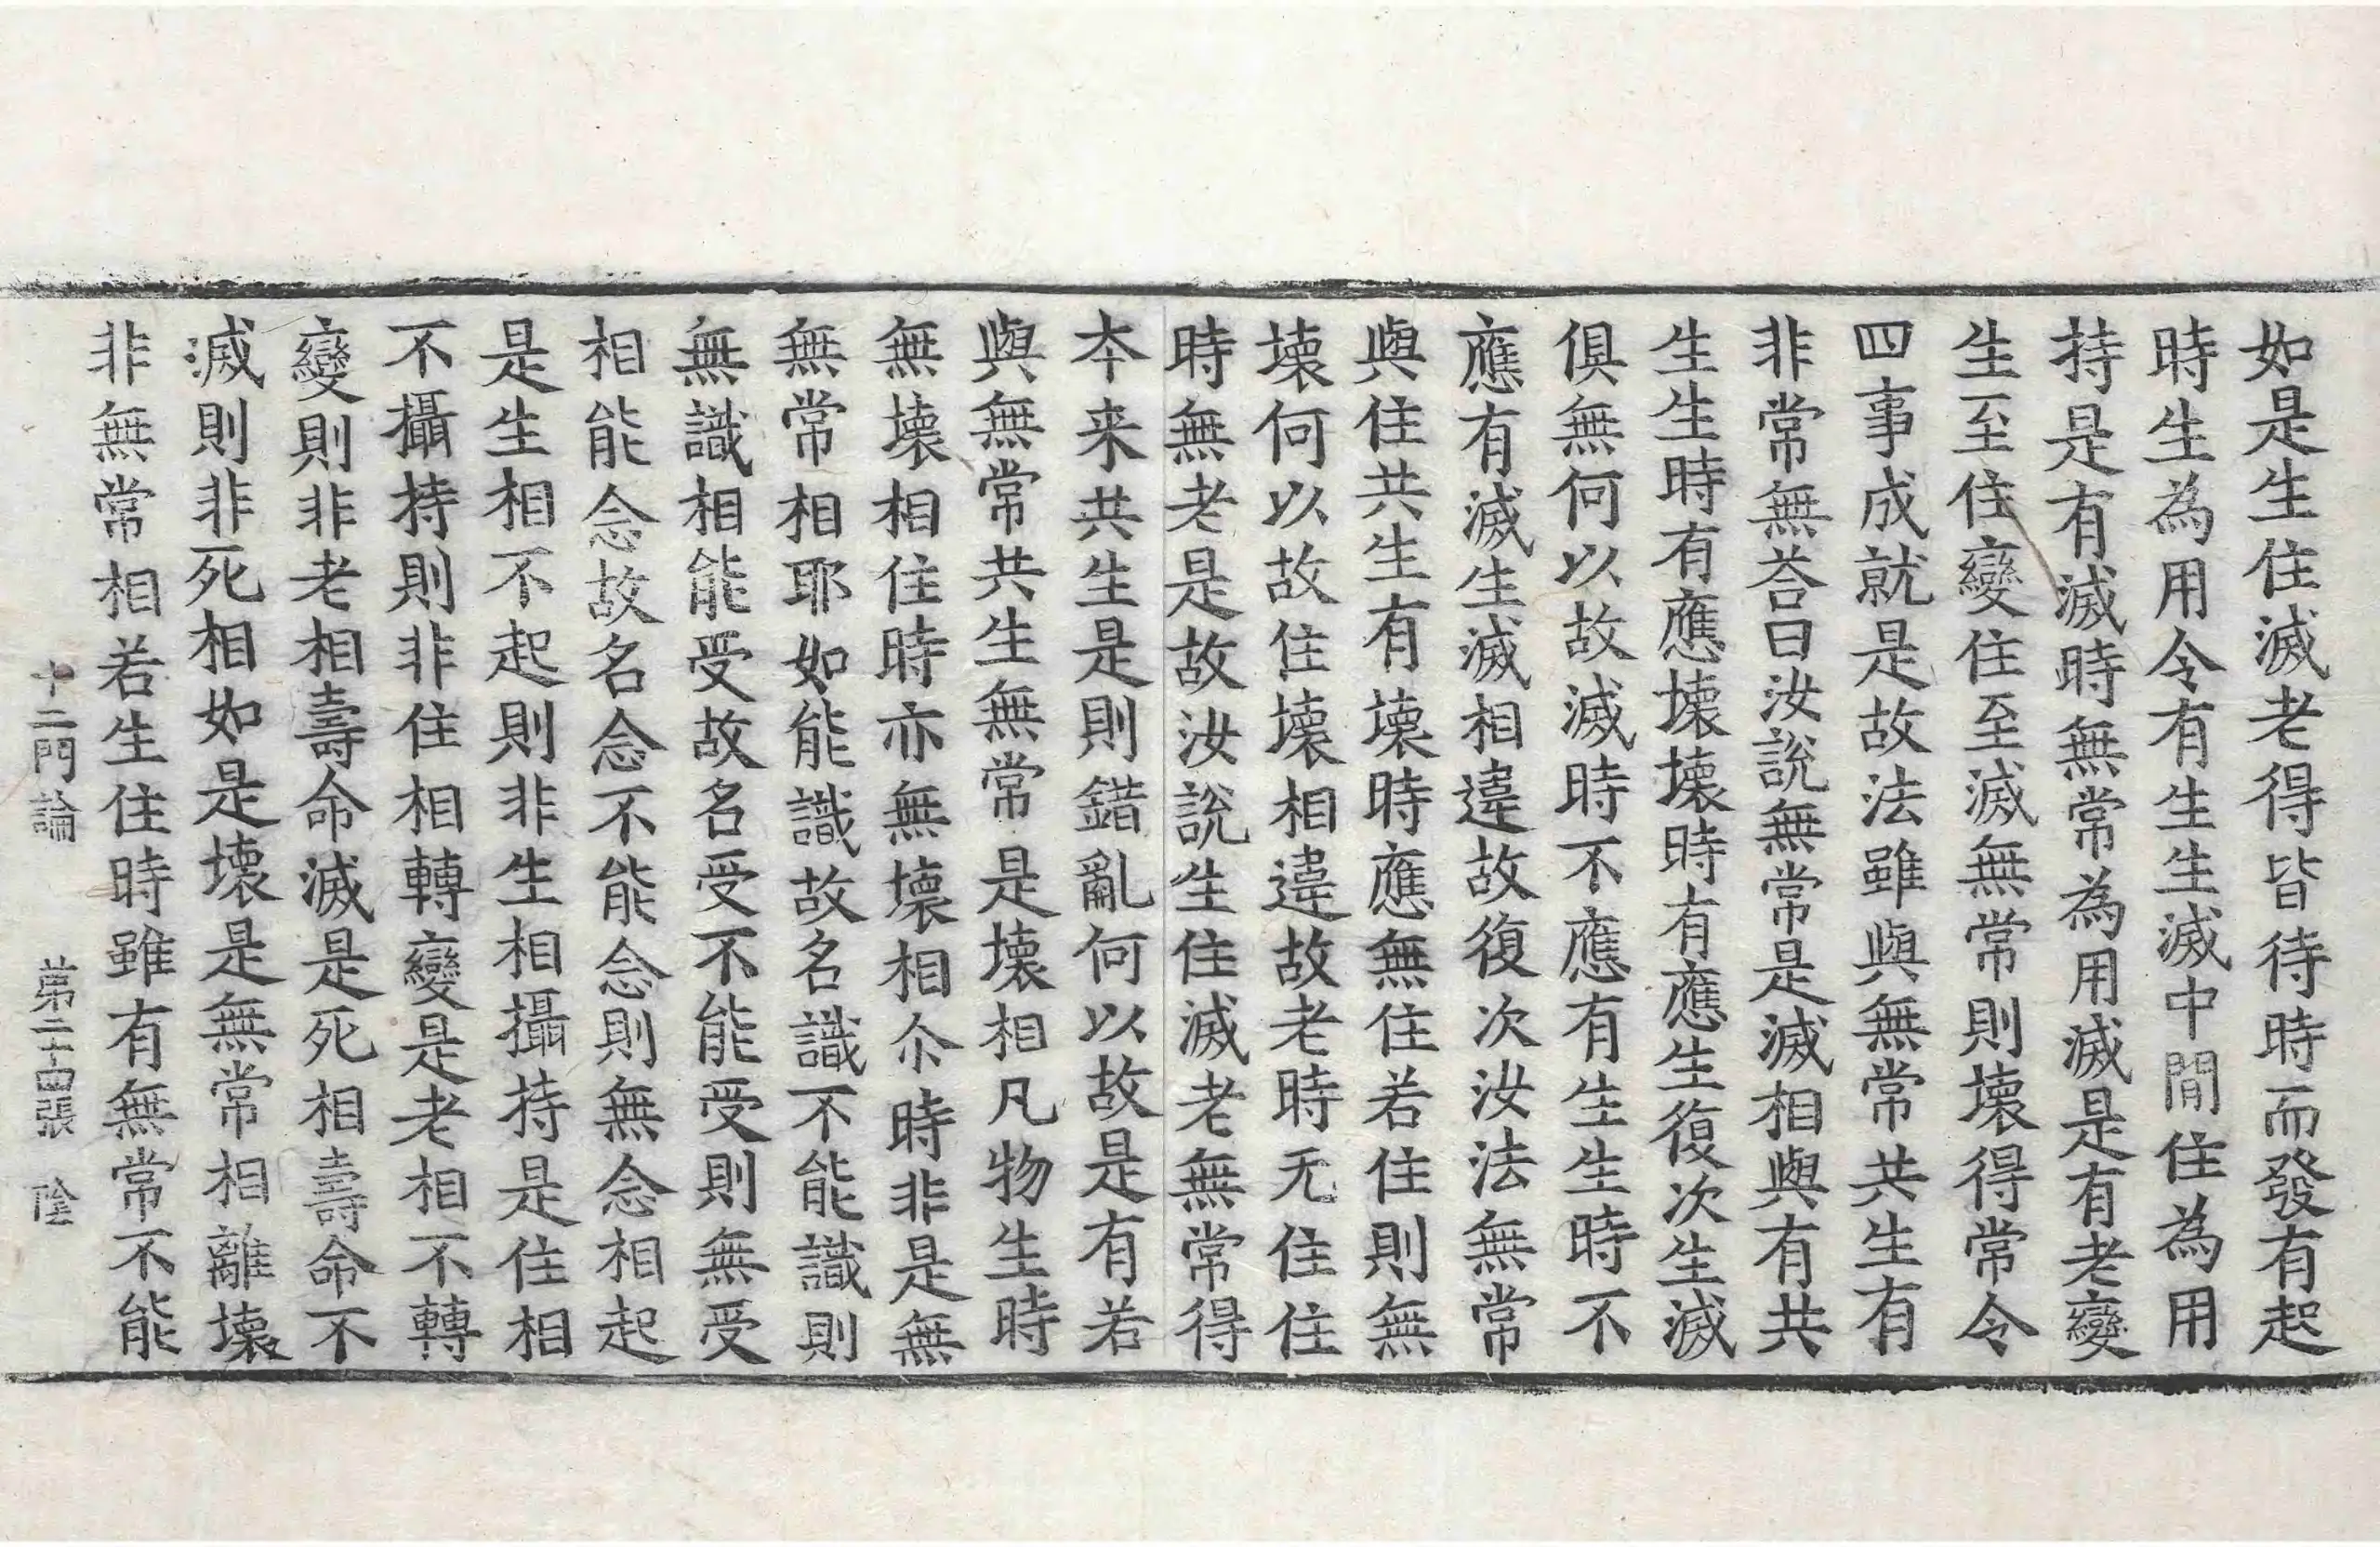 如是生住滅老得皆待時而發有起
時生為用令有生生滅中間住為用
持是有滅時無常為用滅是有老變
生至住變住至滅無常則壞得常令
四事成就是故法雖與無常共生有
非常無荅曰汝說無常是滅相與有共
生生時有應壞壞時有應生復次生滅
俱無何以故滅時不應有生生時不
應有滅生滅相違故復次汝法無常
與住共生有壞時應無住若住則無
壞何以故住壞相違故老時无住住
時無老是故汝說生住滅老無常得
本来共生是則錯亂何以故是有若
與無常共生無常是壞相凡物生時
無壞相住時亦無壞相尒時非是無
無常相耶如能識故名識不能識則
無識相能受故名受不能受則無受
相能念故名念不能念則無念相起
是生相不起則非生相攝持是住相
不攝持則非住相轉變是老相不轉
變則非老相壽命滅是死相壽命不
滅則非死相如是壞是無常相離壞
非無常相若生住時雖有無常不能
十二門論 第二十四張 陰